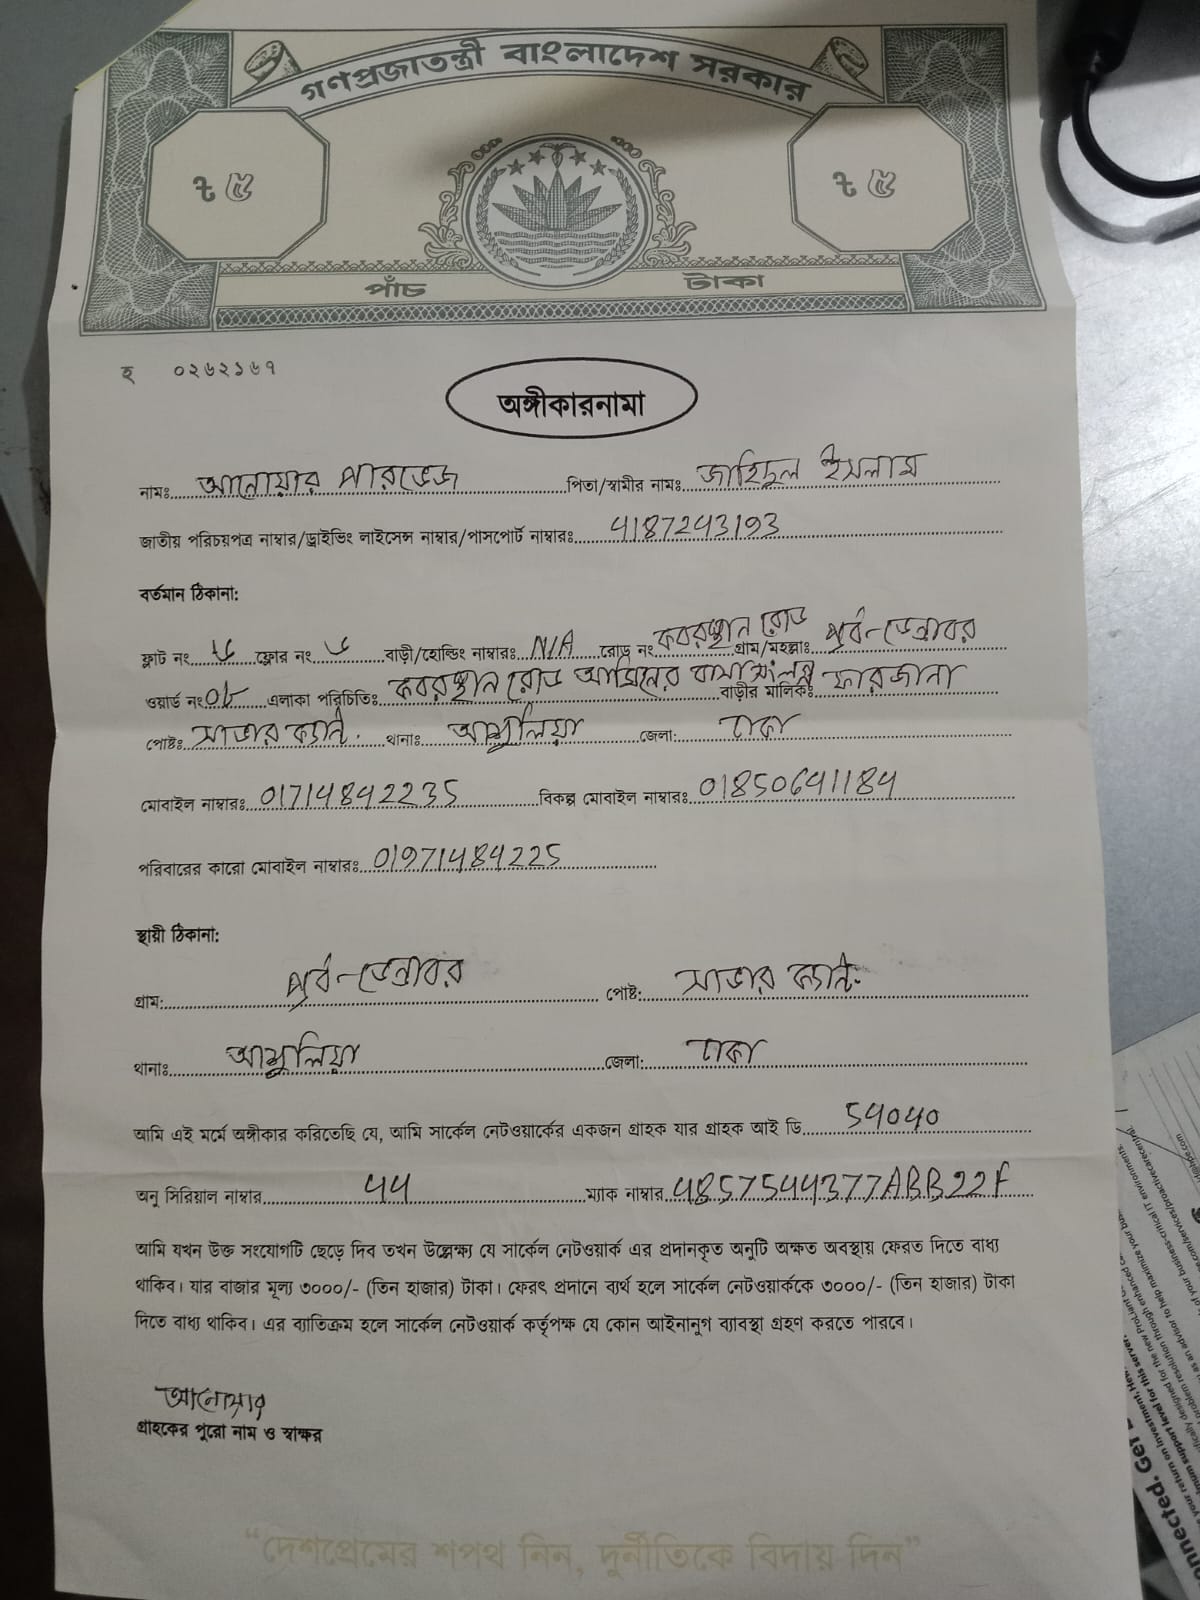 গণপ্রজাতন্ত্রী বাংলাদেশ সরকার
ট ৫ ট ৫
পাঁচ টাকা
হ ০২৬২১৬৭
অঙ্গীকারনামা
নামঃ আনোয়ার পারভেজ পিতা/স্বামীর নামঃ জাহিদুল ইসলাম
জাতীয় পরিচয়পত্র নাম্বার/ড্রাইভিং লাইসেন্স নাম্বার/পাসপোর্ট নাম্বারঃ 4187243193
বর্তমান ঠিকানা:
ফ্লাট নং ফ্লোর নং বাড়ী/হোল্ডিং নাম্বারঃ N/A রোড নং কবরস্থান রোড গ্রাম/মহল্লাঃ পূর্ব-ডেন্ডাবর
ওয়ার্ড নং এলাকা পরিচিতিঃ কবরস্থান রোড আমিনের বাসা সংলগ্ন বাড়ীর মালিকঃ ফারজানা
পোষ্টঃ সাভার ক্যান্ট. থানাঃ আশুলিয়া জেলা: ঢাকা
মোবাইল নাম্বারঃ 01714842235 বিকল্প মোবাইল নাম্বারঃ 01850641184
পরিবারের কারো মোবাইল নাম্বারঃ 01971484225
স্থায়ী ঠিকানা:
গ্রাম: পূর্ব-ডেন্ডাবর পোষ্ট: সাভার ক্যান্ট.
থানাঃ আশুলিয়া জেলা: ঢাকা
আমি এই মর্মে অঙ্গীকার করিতেছি যে, আমি সার্কেল নেটওয়ার্কের একজন গ্রাহক যার গ্রাহক আই ডি 54040
অনু সিরিয়াল নাম্বার 44 ম্যাক নাম্বার 4857544377ABB22F
আমি যখন উক্ত সংযোগটি ছেড়ে দিব তখন উল্লেক্ষ্য যে সার্কেল নেটওয়ার্ক এর প্রদানকৃত অনুটি অক্ষত অবস্থায় ফেরত দিতে বাধ্য
থাকিব। যার বাজার মূল্য ৩০০০/- (তিন হাজার) টাকা। ফেরৎ প্রদানে ব্যর্থ হলে সার্কেল নেটওয়ার্ককে ৩০০০/- (তিন হাজার) টাকা
দিতে বাধ্য থাকিব। এর ব্যাতিক্রম হলে সার্কেল নেটওয়ার্ক কর্তৃপক্ষ যে কোন আইনানুগ ব্যাবস্থা গ্রহণ করতে পারবে।
আনোয়ার
গ্রাহকের পুরো নাম ও স্বাক্ষর
"দেশপ্রেমের শপথ নিন, দুর্নীতিকে বিদায় দিন"